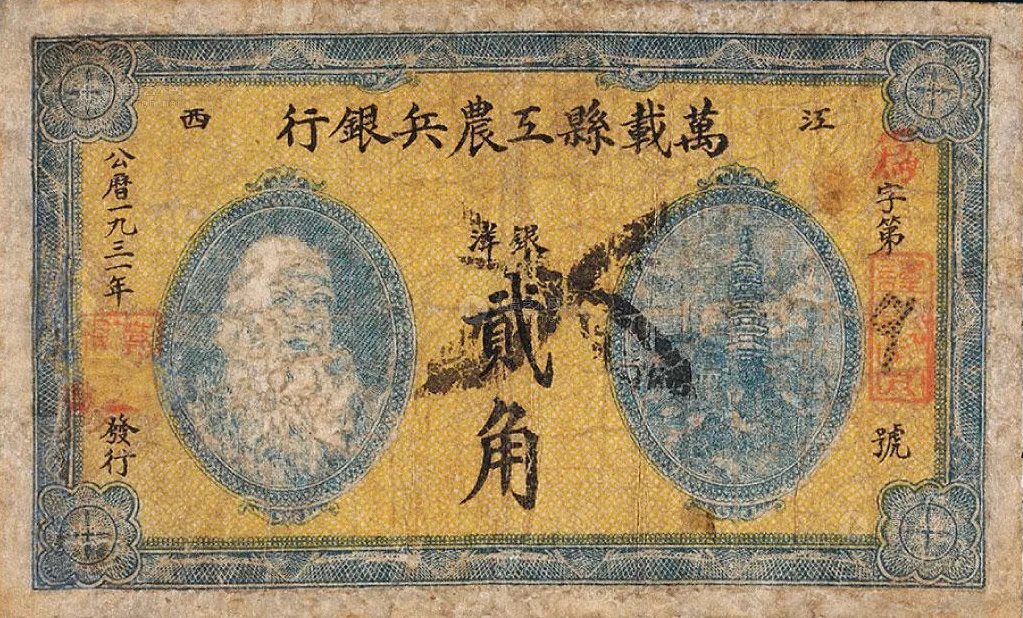 江西
萬載縣工農兵銀行
字第
號
銀洋
貳角
公曆一九三一年
發行